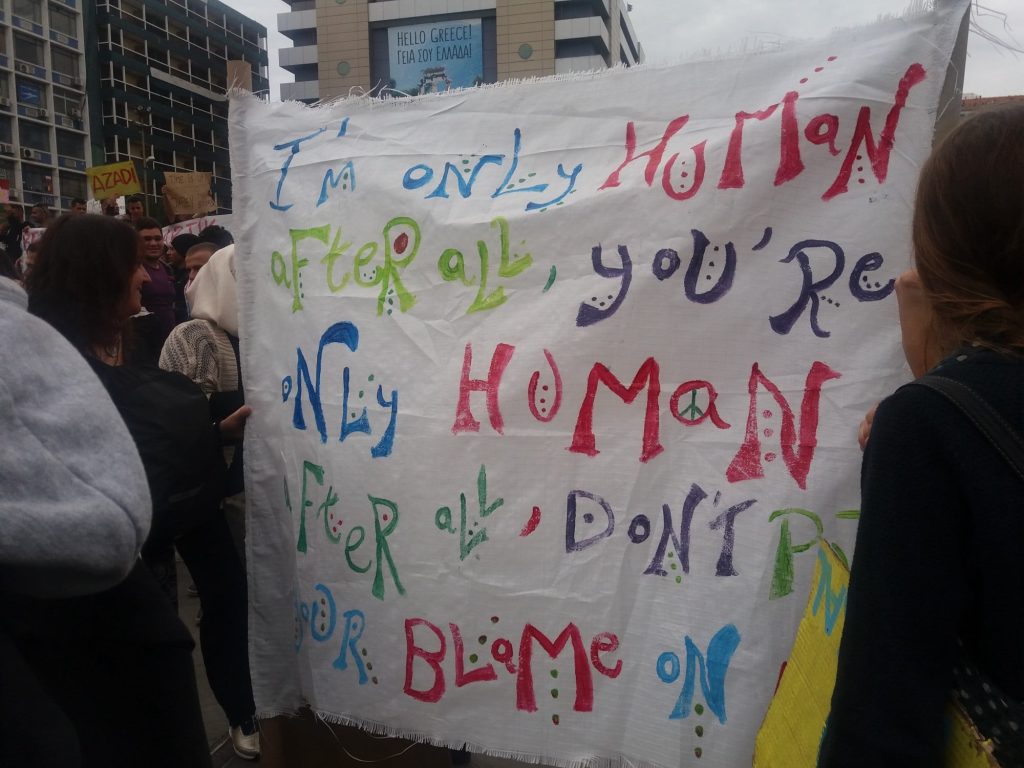 HELLO GREECE!
ΓΕΙΑ ΣΟΥ ΕΛΛΑΔΑ!
AZADI
I'm ONLy HUMaN
aFteR aLL, yoU'Re
ONLy HUMaN
aFteR aLL, DoN'T
yoUR BLaMe oN